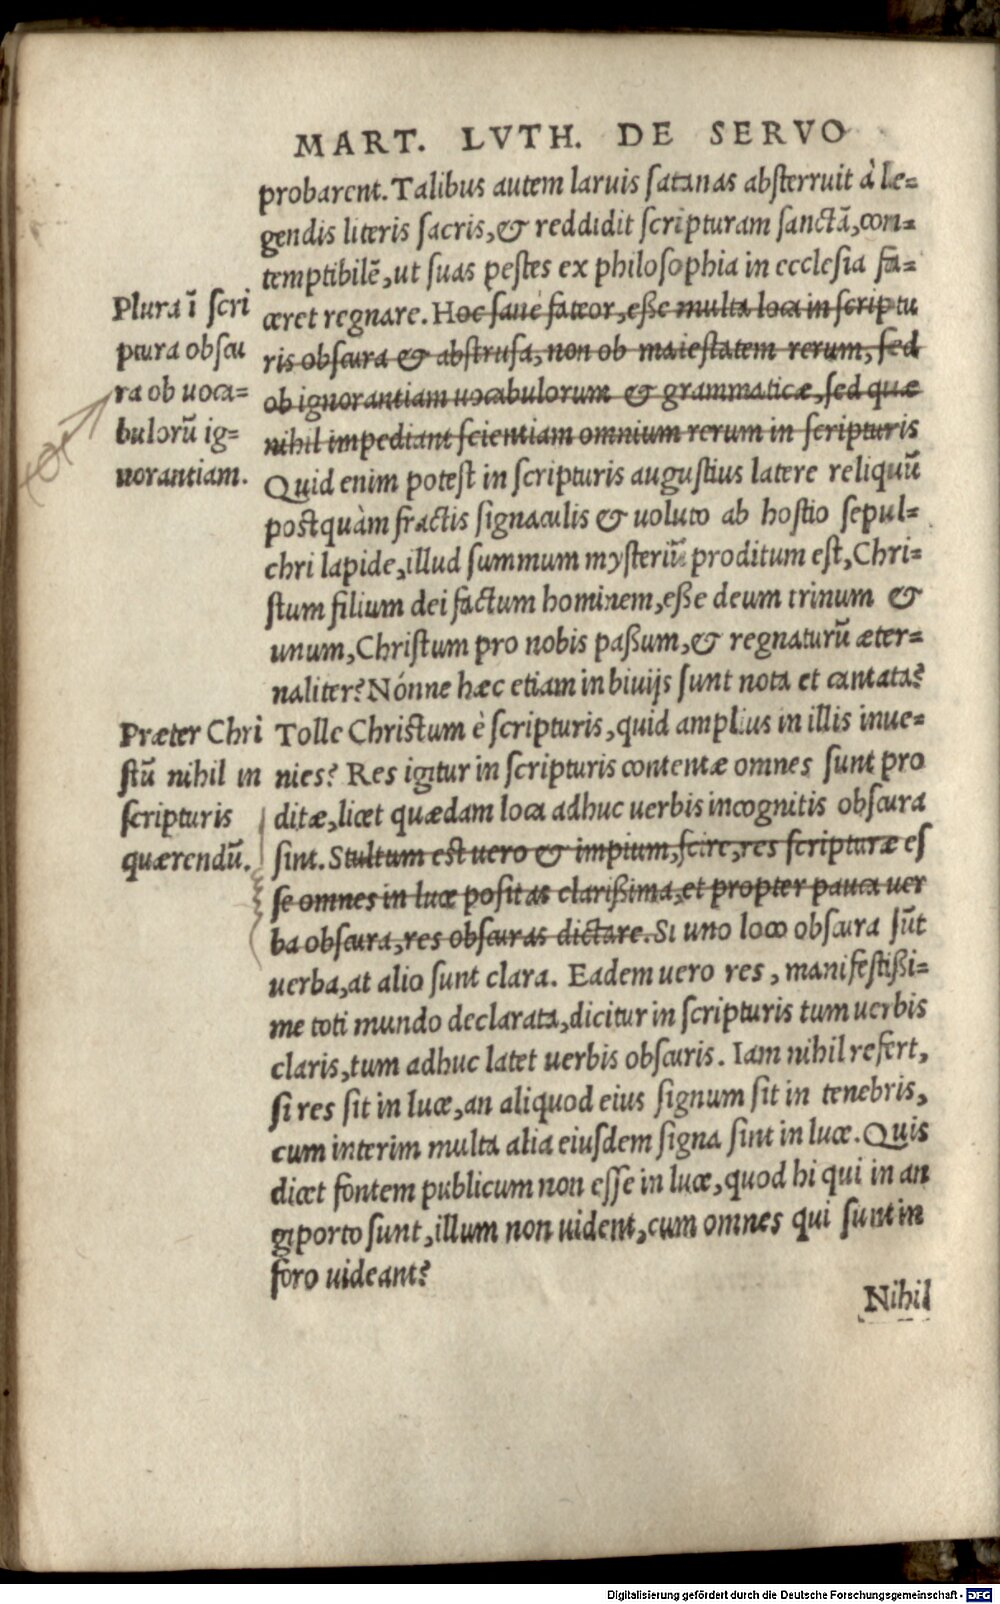 MART. LVTH. DE SERVO
probarent. Talibus autem laruis ſatanas abſterruit à le=
gendis literis ſacris, & reddidit ſcripturam ſanctā, con=
temptibilē, ut ſuas peſtes ex philoſophia in eccleſia fa=
ceret regnare. Hoc ſanè fateor, eſſe multa loca in ſcriptu
ris obſcura & abſtruſa, non ob maieſtatem rerum, ſed
ob ignorantiam uocabulorum & grammaticæ, ſed quæ
nihil impediant ſcientiam omnium rerum in ſcripturis
Quid enim poteſt in ſcripturis auguſtius latere reliquū
poſtquàm fractis ſignaculis & uoluto ab hoſtio ſepul=
chri lapide, illud ſummum myſteriū proditum eſt, Chri=
ſtum filium dei factum hominem, eße deum trinum &
unum, Chriſtum pro nobis paßum, & regnaturū æter=
naliter? Nónne hæc etiam in biuijs ſunt nota et cantata?
Tolle Chriſtum è ſcripturis, quid amplius in illis inue=
nies? Res igitur in ſcripturis contentæ omnes ſunt pro
ditæ, licet quædam loca adhuc uerbis incognitis obſcura
ſint. Stultum est uero & impium, ſcire, res ſcripturæ eſ
ſe omnes in luce poſitas clarißima, et propter pauca uer
ba obſcura, res obſcuras dictare. Si uno loco obſcura ſūt
uerba, at alio ſunt clara. Eadem uero res, manifeſtißi=
me toti mundo declarata, dicitur in ſcripturis tum uerbis
claris, tum adhuc latet uerbis obſcuris. Iam nihil refert,
ſi res ſit in luce, an aliquod eius ſignum ſit in tenebris,
cum interim multa alia eiuſdem ſigna ſint in luce. Quis
dicet fontem publicum non eſſe in luce, quod hi qui in an
giporto ſunt, illum non uident, cum omnes qui ſunt in
foro uideant?
Nihil
Plura ī ſcri
ptura obſcu
ra ob uoca=
bulorū ig=
norantiam.
Præter Chri
ſtū nihil in
ſcripturis
quærendū.
Digitalisierung gefördert durch die Deutsche Forschungsgemeinschaft - DFG